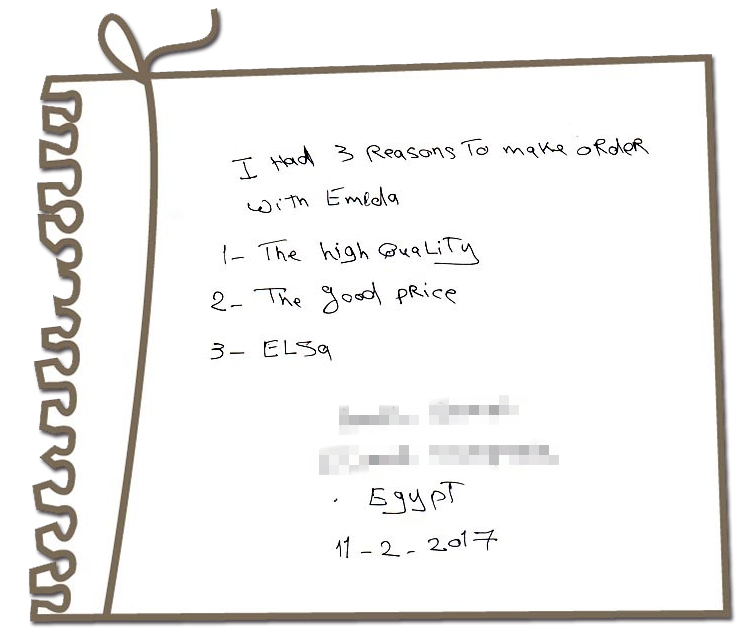 I Had 3 Reasons To make oRdeR
with Emeda
1- The high QuaLiTy
2- The good pRice
3- ELSa
Egypt
11-2-2017